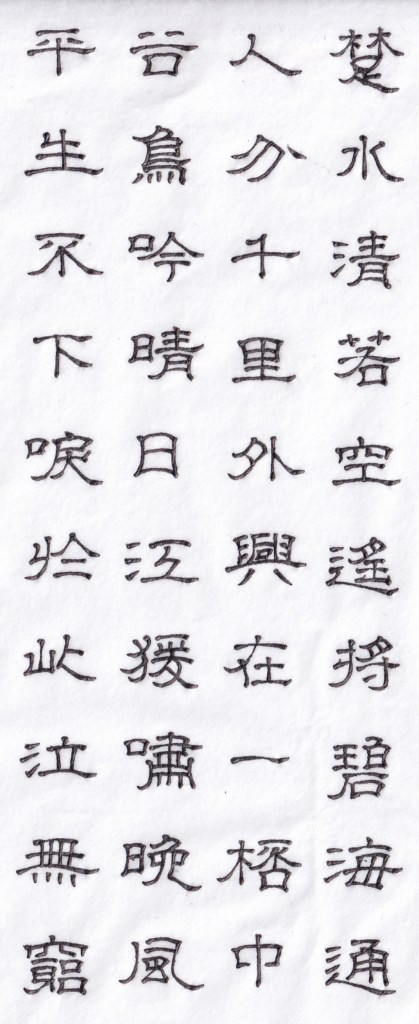 楚水清若空遙將碧海通
人分千里外興在一桮中
谷鳥吟晴日江猨嘯晚風
平生不下唳於此泣無竆